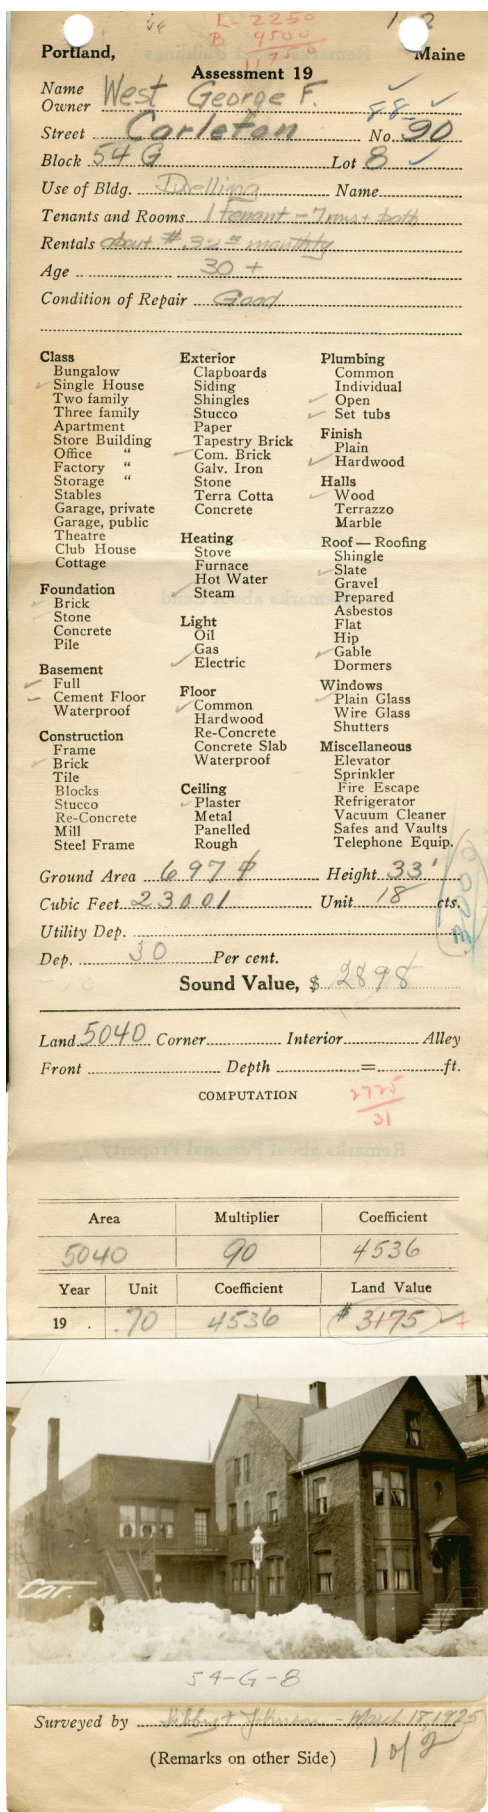 L- 2250
B 9500
11750
Portland, Maine
Assessment 19
Name
Owner West George F.
88
Street Carleton No. 90
Block 54 G Lot 8
Use of Bldg. Dwelling Name
Tenants and Rooms 1 tenant - 7 rms + bath
Rentals about $ 35.00 monthly
Age 30 +
Condition of Repair Good
Class
Bungalow
Single House
Two family
Three family
Apartment
Store Building
Office "
Factory "
Storage "
Stables
Garage, private
Garage, public
Theatre
Club House
Cottage
Foundation
Brick
Stone
Concrete
Pile
Basement
Full
Cement Floor
Waterproof
Construction
Frame
Brick
Tile
Blocks
Stucco
Re-Concrete
Mill
Steel Frame
Exterior
Clapboards
Siding
Shingles
Stucco
Paper
Tapestry Brick
Com. Brick
Galv. Iron
Stone
Terra Cotta
Concrete
Heating
Stove
Furnace
Hot Water
Steam
Light
Oil
Gas
Electric
Floor
Common
Hardwood
Re-Concrete
Concrete Slab
Waterproof
Ceiling
Plaster
Metal
Panelled
Rough
Plumbing
Common
Individual
Open
Set tubs
Finish
Plain
Hardwood
Halls
Wood
Terrazzo
Marble
Roof — Roofing
Shingle
Slate
Gravel
Prepared
Asbestos
Flat
Hip
Gable
Dormers
Windows
Plain Glass
Wire Glass
Shutters
Miscellaneous
Elevator
Sprinkler
Fire Escape
Refrigerator
Vacuum Cleaner
Safes and Vaults
Telephone Equip.
Ground Area 697 Height 33'
Cubic Feet 23001 Unit 18 cts.
Utility Dep.
Dep. 30 Per cent.
Sound Value, $ 2898
Land 5040 Corner Interior Alley
Front Depth = ft.
COMPUTATION
2725
31
Area Multiplier Coefficient
5040 90 4536
Year Unit Coefficient Land Value
19 . .70 4536 $ 3175
Car.
54-G-8
Surveyed by Libby + Johnson - March 18, 1925
(Remarks on other Side) 1 of 2